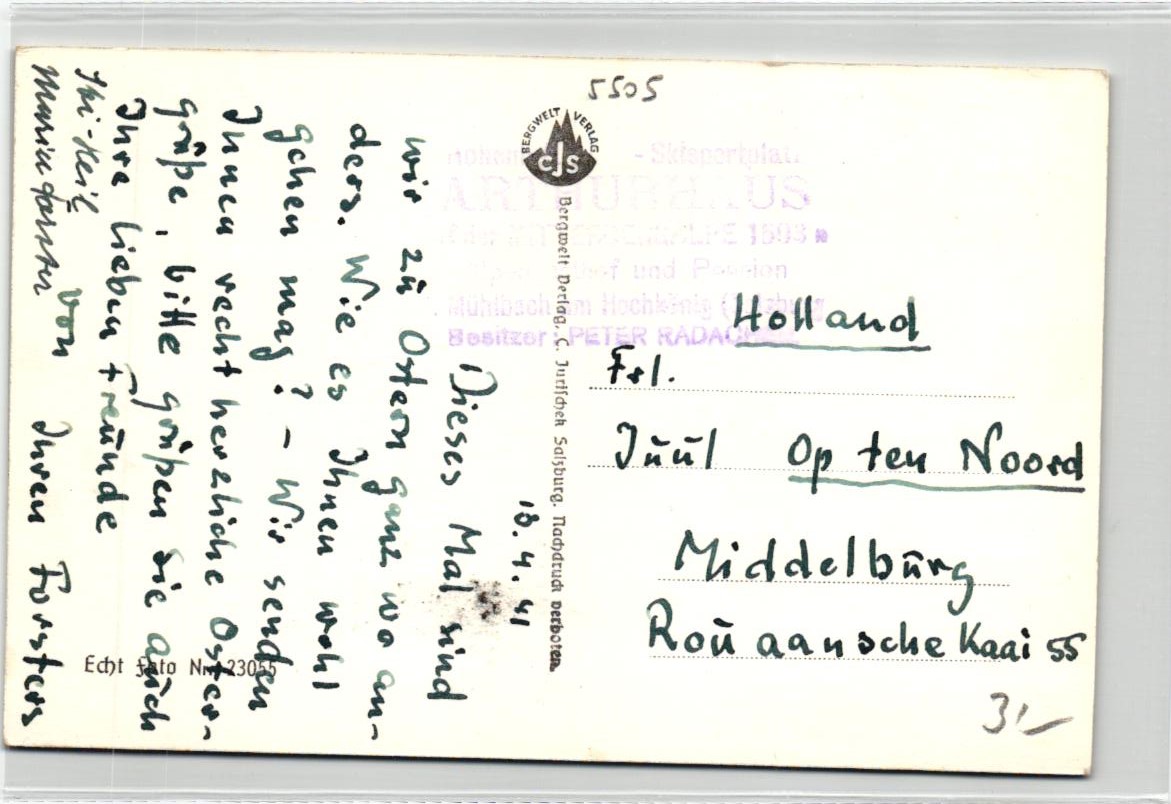 5505
BERGWELT VERLAG
CJS
- Skisportplatz
ARTHURHAUS
1503 m
und Pension
Mühlbach am Hochkönig (Salzburg
Besitzer: PETER RADACHER
Bergwelt Verlag, C. Jurischek Salzburg. Nachdruck verboten.
18.4.41
Dieses Mal sind
wir zu Ostern ganz wo an-
ders. Wie es Ihnen wohl
gehen mag? – Wir senden
Ihnen recht herzliche Oster-
grüße, bitte grüßen Sie auch
Ihre lieben Freunde
von Ihren Forsters
Ski-Heil
Echt Foto Nr. 23055
Holland
Frl.
Juul Op ten Noord
Middelburg
Rouaansche Kaai 55
31-